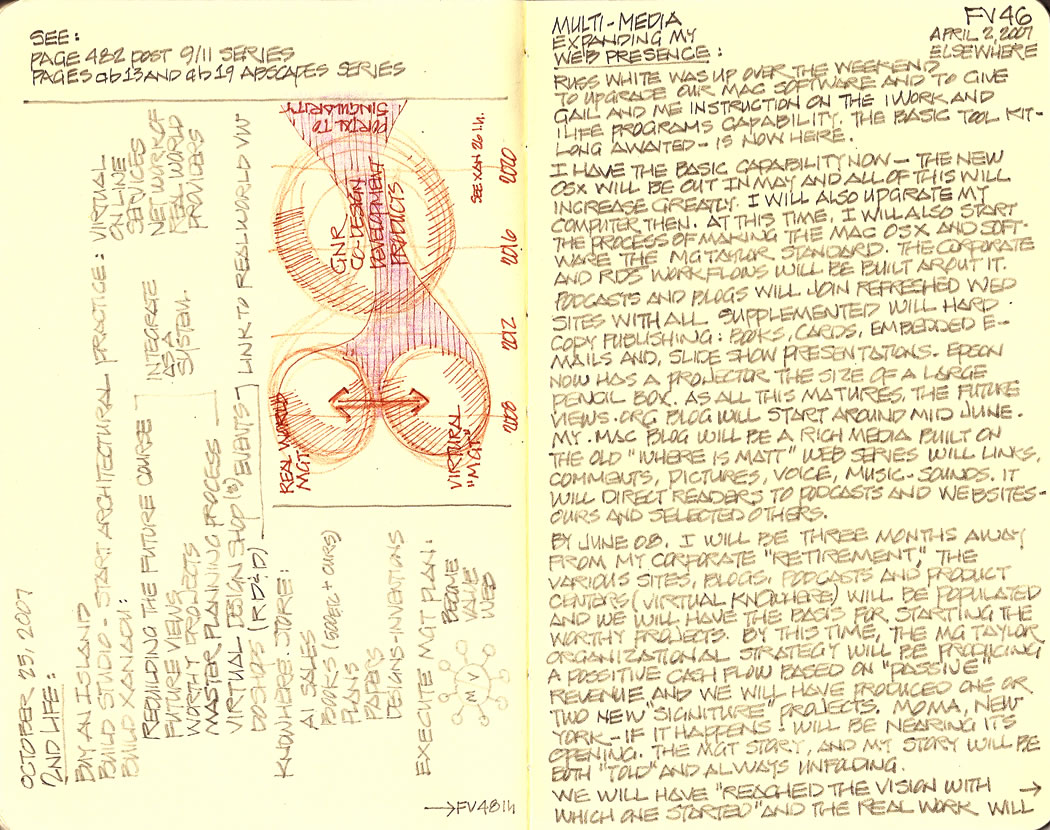 SEE:
PAGE 482 POST 9/11 SERIES
PAGES ab13 AND ab19 ABSCAPES SERIES
OCTOBER 25, 2007
2ND LIFE:
BUY AN ISLAND
BUILD STUDIO - START ARCHITECTURAL PRACTICE: VIRTUAL
ON LINE
SERVICES
NET WORK OF
REAL WORLD
PROVIDERS
BUILD XANADU:
REBUILDING THE FUTURE COURSE
FUTURE VIEWS
WORTHY PROJECTS
MASTER PLANNING PROCESS
INTEGRATE
AS A
SYSTEM.
VIRTUAL DESIGN SHOP (B) EVENTS
DO SHOPS (RD&D)
LINK TO REAL WORLD VW
KNOWHERE STORE:
AI SALES
BOOKS
PLANS
PAPERS
DESIGNS - INVENTIONS
EXECUTE MGT PLAN:
MV
BECOME
VALUE
WEB
REAL WORLD
MGT
VIRTURAL
"MGT"
GNR
CO-DESIGN
DEVELOPMENT
PRODUCTS
PORTAL TO
SINGULARITY
2008
2012
2016
2020
→FV48 lh
MULTI-MEDIA
EXPANDING MY
WEB PRESENCE:
FV46
APRIL 2, 2007
ELSEWHERE
RUSS WHITE WAS UP OVER THE WEEKEND
TO UPGRADE OUR MAC SOFTWARE AND TO GIVE
GAIL AND ME INSTRUCTION ON THE IWORK AND
ILIFE PROGRAMS CAPABILITY. THE BASIC TOOL KIT -
LONG AWAITED - IS NOW HERE.
I HAVE THE BASIC CAPABILITY NOW - THE NEW
OSX WILL BE OUT IN MAY AND ALL OF THIS WILL
INCREASE GREATLY. I WILL ALSO UPGRATE MY
COMPUTER THEN. AT THIS TIME, I WILL ALSO START
THE PROCESS OF MAKING THE MAC OSX AND SOFT-
WARE THE MG TAYLOR STANDARD. THE CORPORATE
AND RDS WORKFLOWS WILL BE BUILT AROUT IT.
PODCASTS AND BLOGS WILL JOIN REFRESHED WEB
SITES WITH ALL SUPPLEMENTED WILL HARD
COPY PUBLISHING: BOOKS, CARDS, EMBEDDED E-
MAILS AND, SLIDE SHOW PRESENTATIONS. EPSON
NOW HAS A PROJECTOR THE SIZE OF A LARGE
PENCIL BOX. AS ALL THIS MATURES, THE FUTURE
VIEWS.ORG BLOG WILL START AROUND MID JUNE.
MY .MAC BLOG WILL BE A RICH MEDIA BUILT ON
THE OLD "WHERE IS MATT" WEB SERIES WILL LINKS,
COMMENTS, PICTURES, VOICE, MUSIC - SOUNDS. IT
WILL DIRECT READERS TO PODCASTS AND WEBSITES -
OURS AND SELECTED OTHERS.
BY JUNE 08, I WILL BE THREE MONTHS AWAY
FROM MY CORPORATE "RETIREMENT", THE
VARIOUS SITES, BLOGS, PODCASTS AND PRODUCT
CENTERS (VIRTUAL KNOWHERE) WILL BE POPULATED
AND WE WILL HAVE THE BASIS FOR STARTING THE
WORTHY PROJECTS. BY THIS TIME, THE MG TAYLOR
ORGANIZATIONAL STRATEGY WILL BE PRODUCING
A POSSITIVE CASH FLOW BASED ON "PASSIVE"
REVENUE AND WE WILL HAVE PRODUCED ONE OR
TWO NEW "SIGNITURE" PROJECTS. MOMA, NEW
YORK - IF IT HAPPENS - WILL BE NEARING ITS
OPENING. THE MGT STORY, AND MY STORY WILL BE
BOTH "TOLD" AND ALWAYS UNFOLDING.
WE WILL HAVE "REACHED THE VISION WITH →
WHICH ONE STARTED" AND THE REAL WORK WILL